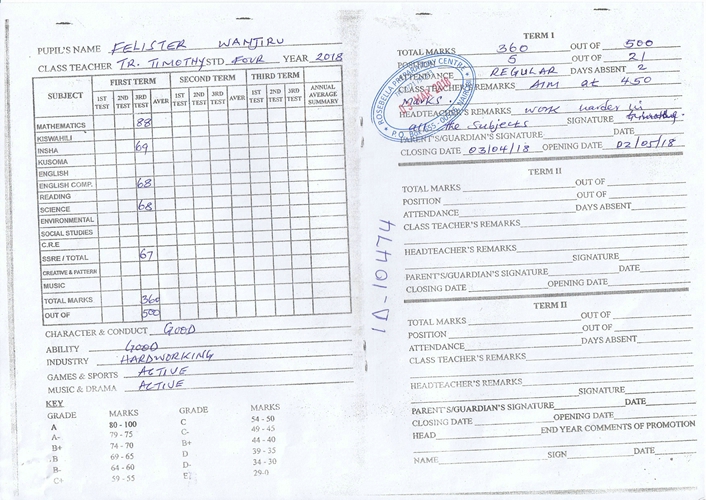 PUPIL'S NAME FELISTER WANJIRU
CLASS TEACHER TR. TIMOTHY STD FOUR YEAR 2018
SUBJECT FIRST TERM SECOND TERM THIRD TERM ANNUAL AVERAGE SUMMARY
1ST TEST 2ND TEST 3RD TEST AVER 1ST TEST 2ND TEST 3RD TEST AVER 1ST TEST 2ND TEST 3RD TEST AVER
MATHEMATICS 88
KISWAHILI
INSHA 69
KUSOMA
ENGLISH
ENGLISH COMP. 68
READING
SCIENCE 68
ENVIRONMENTAL
SOCIAL STUDIES
C.R.E
SSRE / TOTAL 67
CREATIVE & PATTERN
MUSIC
TOTAL MARKS 360
OUT OF 500
CHARACTER & CONDUCT GOOD
ABILITY GOOD
INDUSTRY HARDWORKING
GAMES & SPORTS ACTIVE
MUSIC & DRAMA ACTIVE
KEY
GRADE MARKS GRADE MARKS
A 80 - 100 C 54 - 50
A- 79 - 75 C- 49 - 45
B+ 74 - 70 B+ 44 - 40
B 69 - 65 D 39 - 35
B- 64 - 60 D- 34 - 30
C+ 59 - 55 E 29-0
1D-10474
TERM I
TOTAL MARKS 360 OUT OF 500
POSITION 5 OUT OF 21
ATTENDANCE REGULAR DAYS ABSENT 2
CLASS TEACHER'S REMARKS AIM at 450
marks.
HEADTEACHER'S REMARKS work harder in
all the subjects SIGNATURE
PARENT'S/GUARDIAN'S SIGNATURE DATE
CLOSING DATE 03/04/18 OPENING DATE 02/05/18
ROSEBELLA
P.O. BOX
TERM II
TOTAL MARKS OUT OF
POSITION OUT OF
ATTENDANCE DAYS ABSENT
CLASS TEACHER'S REMARKS
HEADTEACHER'S REMARKS
SIGNATURE
PARENT'S/GUARDIAN'S SIGNATURE DATE
CLOSING DATE OPENING DATE
TERM II
TOTAL MARKS OUT OF
POSITION OUT OF
ATTENDANCE DAYS ABSENT
CLASS TEACHER'S REMARKS
HEADTEACHER'S REMARKS
SIGNATURE
PARENT'S/GUARDIAN'S SIGNATURE DATE
CLOSING DATE OPENING DATE
HEAD END YEAR COMMENTS OF PROMOTION
NAME SIGN DATE